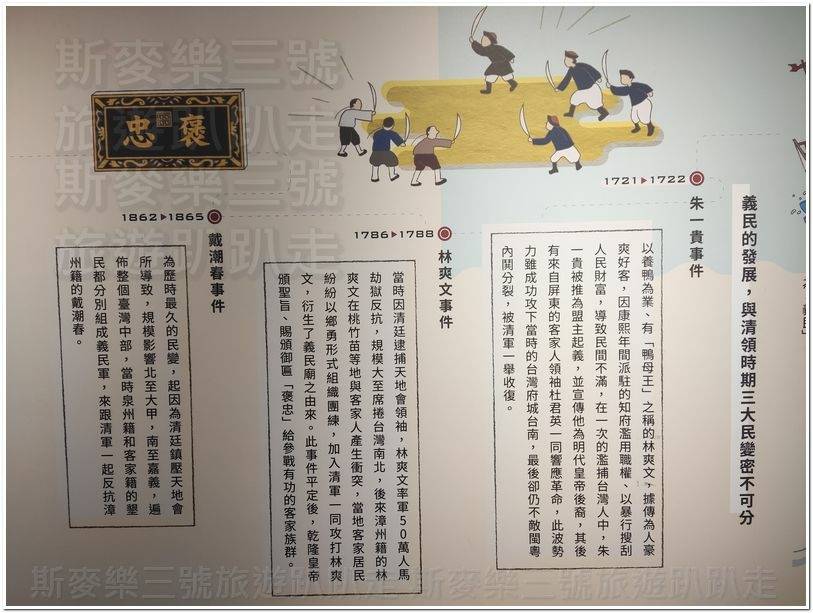 義民的發展，與清領時期三大民變密不可分
1721▶1722
朱一貴事件
以養鴨為業、有「鴨母王」之稱的林爽文，據傳為人豪
爽好客，因康熙年間派駐的知府濫用職權、以暴行搜刮
人民財富，導致民間不滿，在一次的濫捕台灣人中，朱
一貴被推為盟主起義，並宣傳他為明代皇帝後裔，其後
有來自屏東的客家人領袖杜君英一同響應革命，此波勢
力雖成功攻下當時的台灣府城台南，最後卻仍不敵閩粵
內鬨分裂，被清軍一舉收復。
1786▶1788
林爽文事件
當時因清廷逮捕天地會領袖，林爽文率軍50萬人馬
劫獄反抗，規模大至席捲台灣南北，後來漳州籍的林
爽文在桃竹苗等地與客家人產生衝突，當地客家居民
紛紛以鄉勇形式組織團練，加入清軍一同攻打林爽
文，衍生了義民廟之由來。此事件平定後，乾隆皇帝
頒聖旨、賜頒御匾「褒忠」給參戰有功的客家族群。
1862▶1865
戴潮春事件
為歷時最久的民變，起因為清廷鎮壓天地會
所導致，規模影響北至大甲，南至嘉義，遍
佈整個臺灣中部，當時泉州籍和客家籍的墾
民都分別組成義民軍，來跟清軍一起反抗漳
州籍的戴潮春。
褒忠
斯麥樂三號
旅遊趴趴走
斯麥樂三號
旅遊趴趴走
斯麥樂三號旅遊趴趴走 斯麥樂三號旅遊趴趴走